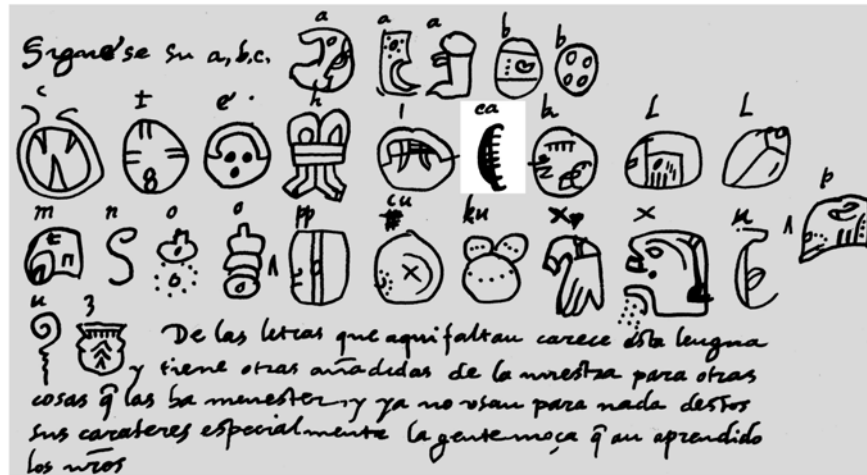 a a a b b
Siguese su a, b, c.
c t e h i ca k L L
m n o o pp cu ku x x u p
u z De las letras que aqui faltan carece esta lengua
y tiene otras añadidas de la nuestra para otras
cosas q̃ las ha menester, y ya no usan para nada destos
sus carateres especialmente la gente moça q̃ an aprendido
los nr̃os